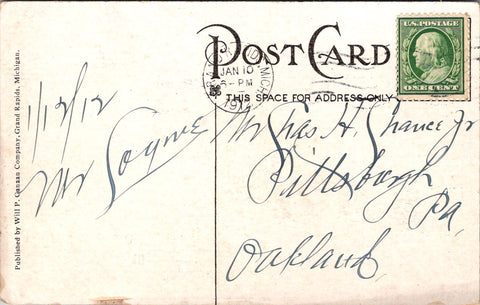 POST CARD
THIS SPACE FOR ADDRESS ONLY
U.S. POSTAGE
ONE CENT
JAN 10
6-PM
MICH
Published by Will P. Canaan Company, Grand Rapids, Michigan.
1/12/12
Mr
Mr Chas H. Chance Jr
Pittsburgh
Pa,
Oakland,